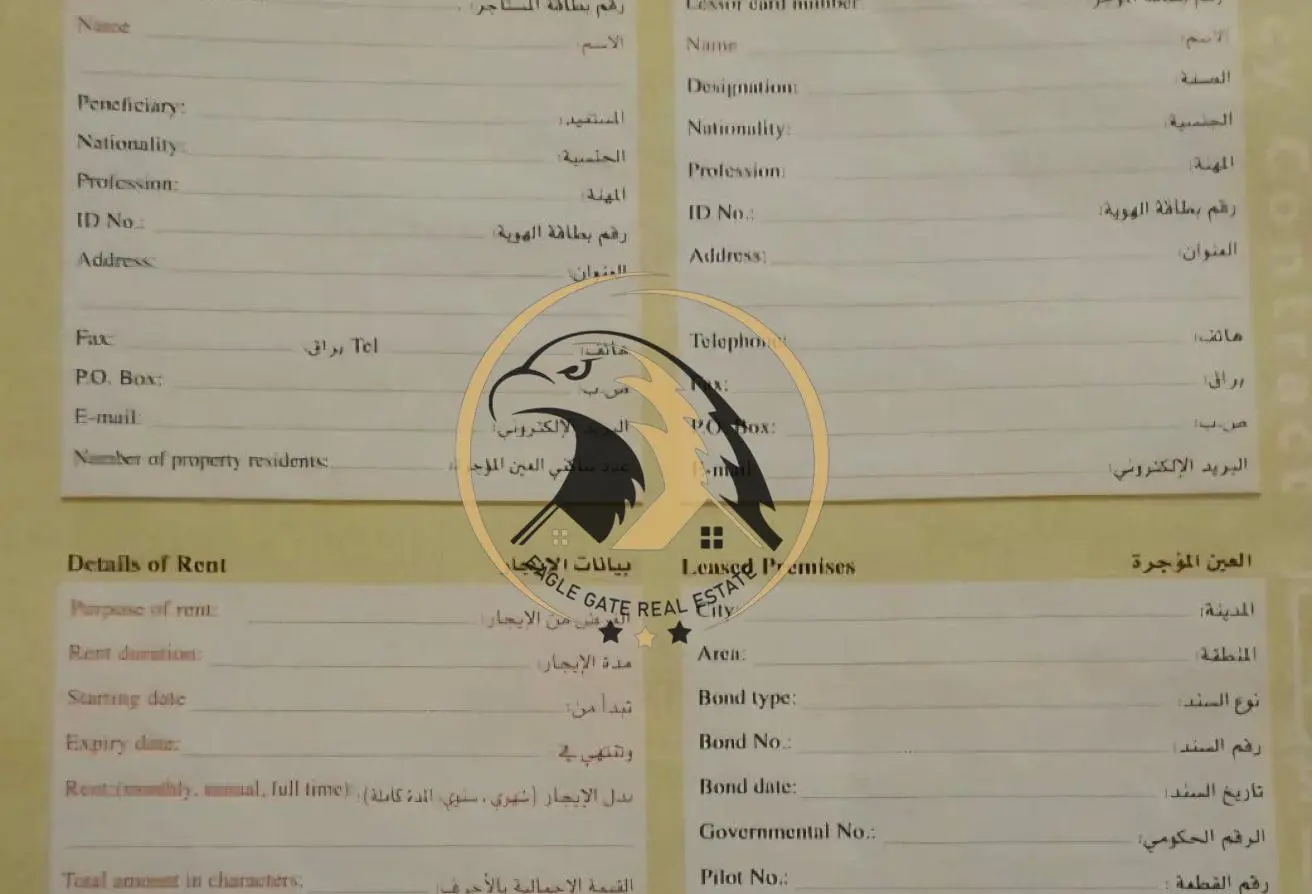 رقم بطاقة المستأجر:
Name الاسم:
Beneficiary: المستفيد:
Nationality: الجنسية:
Profession: المهنة:
ID No.: رقم بطاقة الهوية:
Address: العنوان:
Fax: براق: Tel هاتف:
P.O. Box: ص.ب:
E-mail: البريد الإلكتروني:
Number of property residents: عدد ساكني العين المؤجرة:
Lessor card number رقم بطاقة المؤجر
Name الاسم:
Designation: الصفة:
Nationality: الجنسية:
Profession: المهنة:
ID No.: رقم بطاقة الهوية:
Address: العنوان:
Telephone: هاتف:
Fax: براق:
P.O. Box: ص.ب:
E-mail البريد الإلكتروني:
EAGLE GATE REAL ESTATE
Details of Rent بيانات الإيجار
Purpose of rent: الغرض من الإيجار:
Rent duration: مدة الإيجار:
Starting date تبدأ من:
Expiry date: وتنتهي في
Rent (monthly, annual, full time) بدل الإيجار (شهري، سنوي، المدة كاملة):
Total amount in characters: القيمة الإجمالية بالأحرف:
Leased Premises العين المؤجرة
City: المدينة:
Area: المنطقة:
Bond type: نوع السند:
Bond No.: رقم السند:
Bond date: تاريخ السند:
Governmental No.: الرقم الحكومي:
Pilot No.: رقم القطعة:
ey Contract